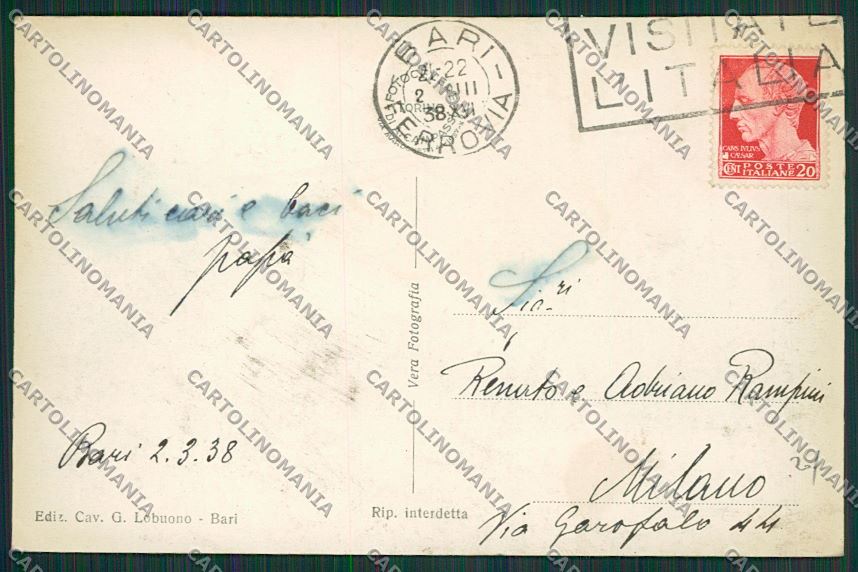 BARI -
FERROVIA
21-22
2 III
38 XVI
VISITATE
L'ITALIA
CAIVS IVLIVS
CAESAR
CENT POSTE ITALIANE 20
Saluti cari e baci
papà
Bari 2.3.38
Ediz. Cav. G. Lobuono - Bari
Vera Fotografia
Rip. interdetta
Sig.ri
Renato e Adriano Rampini
Milano
Via Garofalo 44
CARTOLINOMANIA